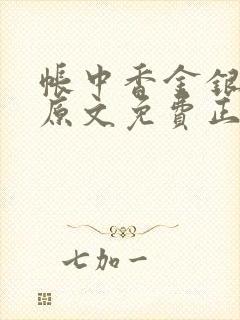 帳中香金銀
原文免費正
七加一